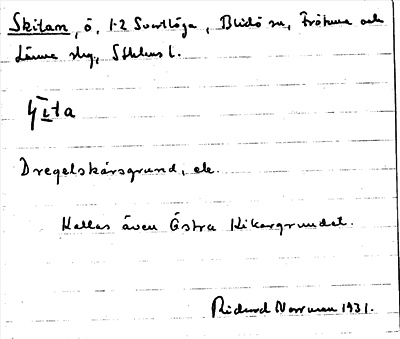 Skitan, ö, 1-2 Svartlöga, Blidö sn, Frötuna och
Länna skg, Sthlms l.
Dregelskärsgrund, ek.
Kallas även Östra Kikargrundet.
Rickard Norrman 1931.